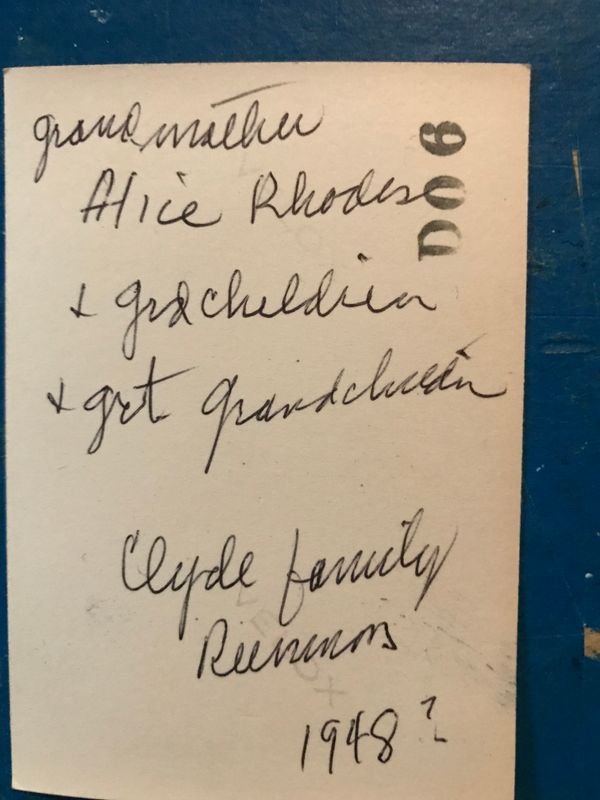 grandmother
Alice Rhodes
D06
+ grdchildren
+ grt grandchildren
Clyde family
Reunions
1948 ?